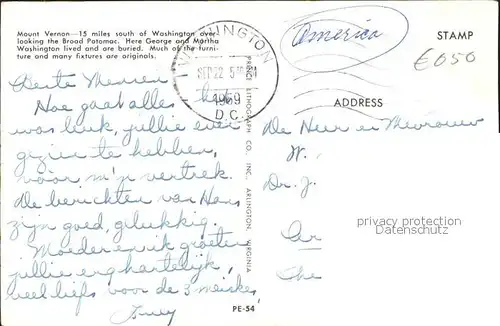 Mount Vernon—15 miles south of Washington over-
looking the Broad Potomac. Here George and Martha
Washington lived and are buried. Much of the furni-
ture and many fixtures are originals.
WASHINGTON
SEP 22 5
1969
D.C.
America
STAMP
€050
ADDRESS
PRINCE LITHOGRAPH CO., INC., ARLINGTON, VIRGINIA
Beste Mensen
Hoe gaat alles het
was leuk, jullie even
gezien te hebben,
vóór m'n vertrek.
De berichten van Hans
zijn goed, gelukkig.
Moeder en ik groeten
jullie erg hartelijk,
veel liefs voor de 3 meisjes,
De Heer en Mevrouw
W.
Dr. J.
privacy protection
Datenschutz
PE-54